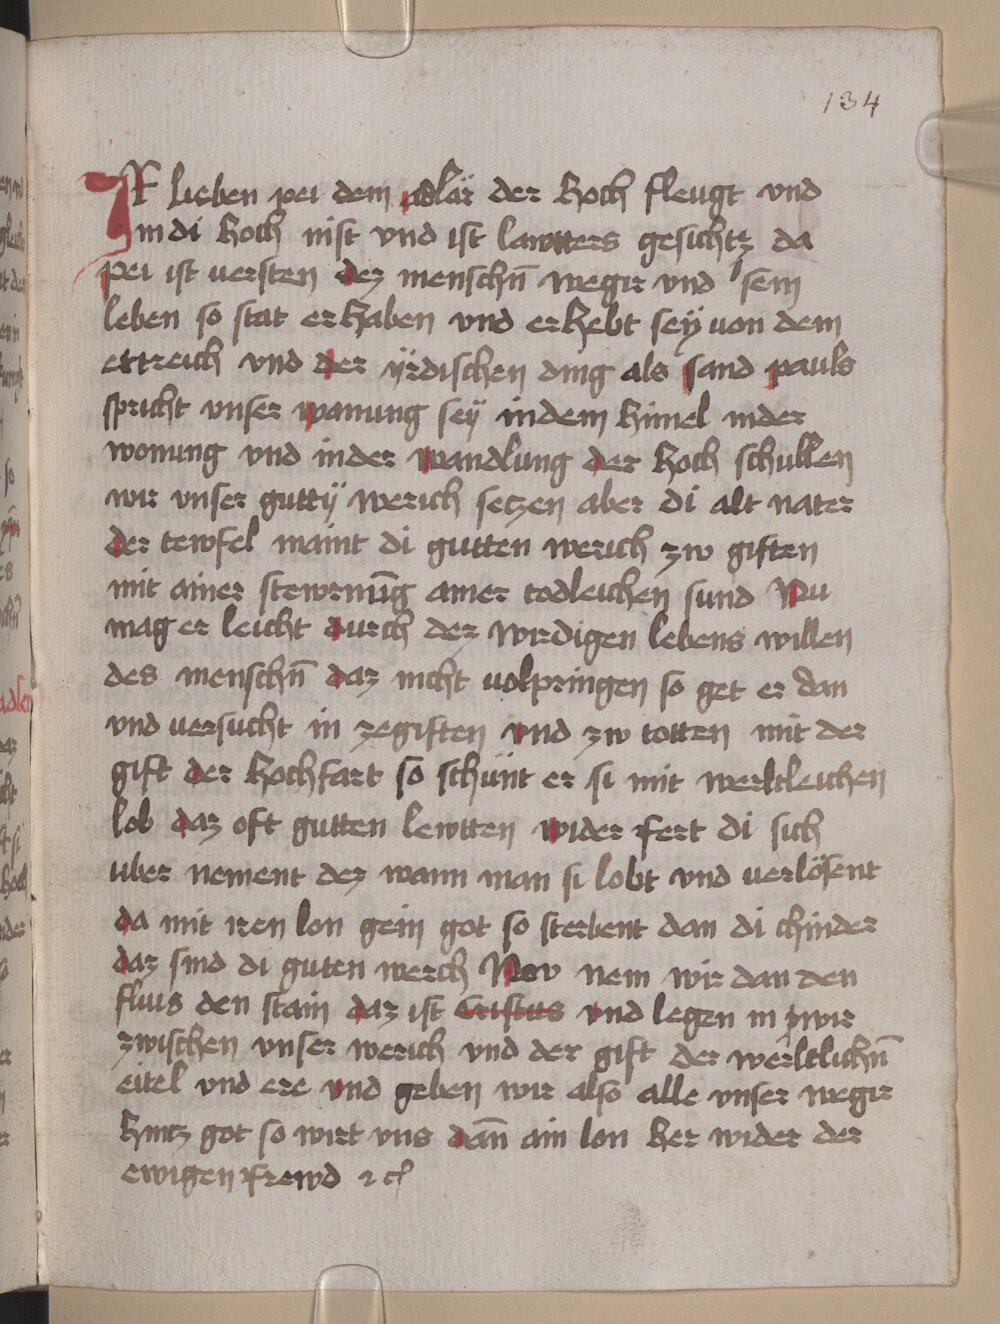 134
IR lieben pei dem adlär der hoch fleugt vnd
In di hoch nist vnd ist lawtters gesichtz da
pei ist uersten dez menschn̄ wegir vnd sein
leben so stat erhaben vnd erhebt seÿ von dem
ertreich vnd der ÿrdischen ding als sand pauls
spricht vnser wanung seÿ in dem himel in der
wonung vnd in der wandlung der hoch schullen
wir vnser guttÿ werich seczen aber di alt nater
der tewfel maint di gutten werich zw giften
mit ainer stewrnūg ainer todleichen sund Nu
mag er leicht durch dez wirdigen lebens willen
des menschn̄ daz nicht volpringen so get er dan
vnd uersucht in zegiften vnd zw totten mit der
gift der hochfart so schünt er si mit werltleichen
lob daz oft gutten lewtten wider fert di sich
uber nement dez wann man si lobt vnd uerlösent
da mit iren lon gein got so sterbent dan di chinder
daz sind di guten werch Now nem wir dan den
flius den stain daz ist Cristus vnd legen in
zwischen vnser werich vnd der gift der werltlichn̄
eitel vnd ere vnd geben wir also alle vnser wegir
hintz got so wirt vns dan̄ ain lon her wider der
ewigen frewd ⁊ cͭ